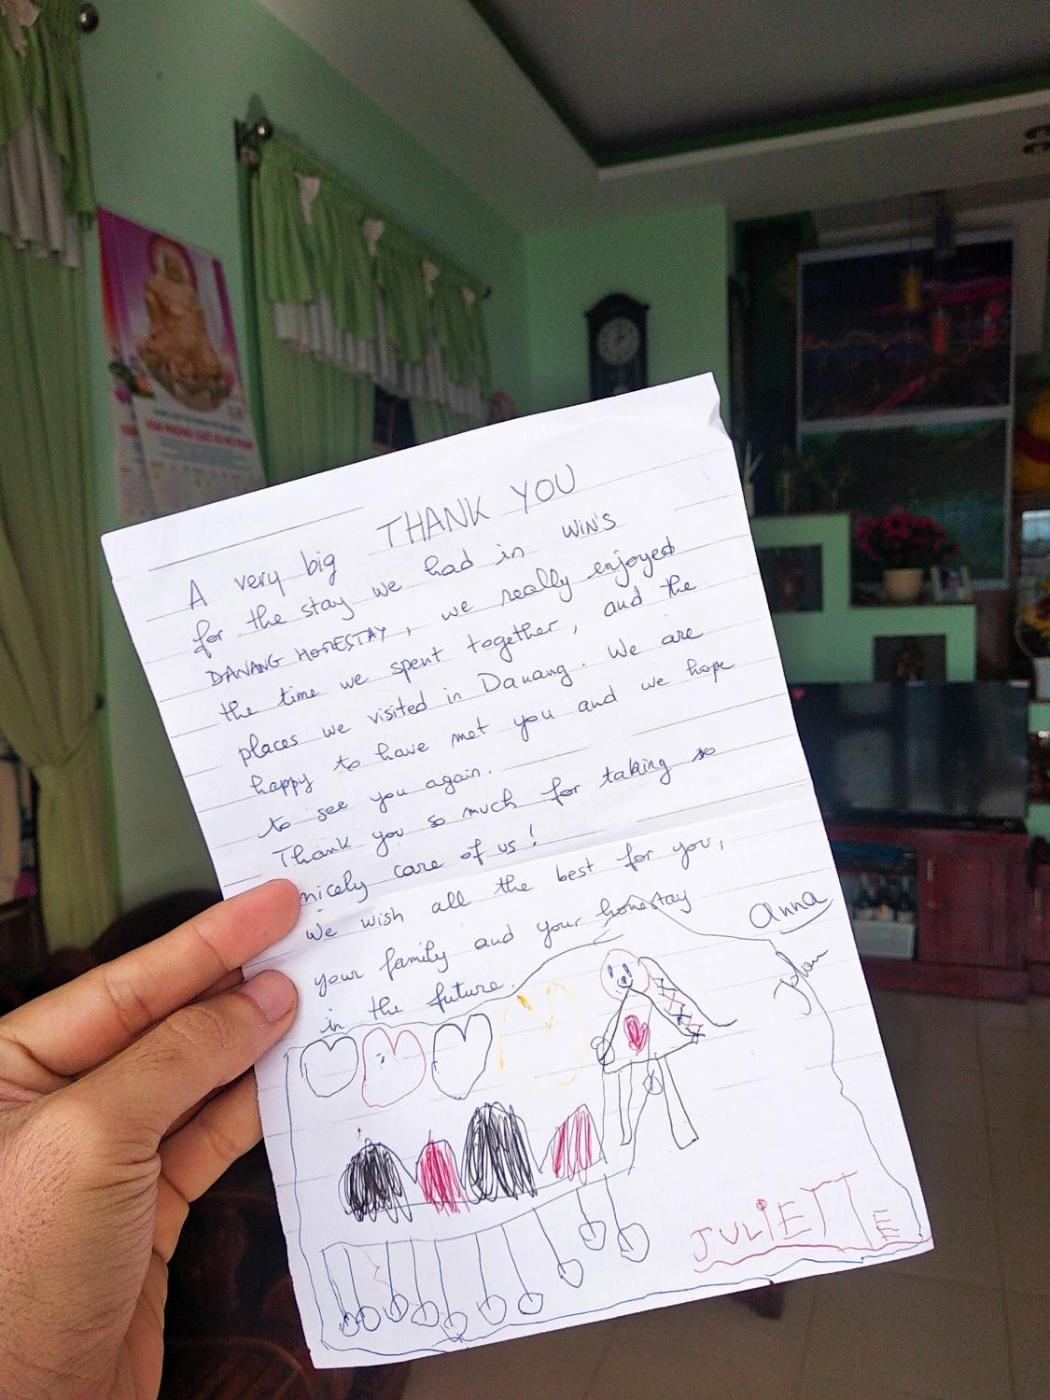 A very big THANK YOU
for the stay we had in WIN'S
DANANG HOMESTAY, we really enjoyed
the time we spent together, and the
places we visited in Danang. We are
happy to have met you and we hope
to see you again.
Thank you so much for taking so
nicely care of us!
We wish all the best for you,
your family and your homestay
in the future.
Anna
JULiETTE